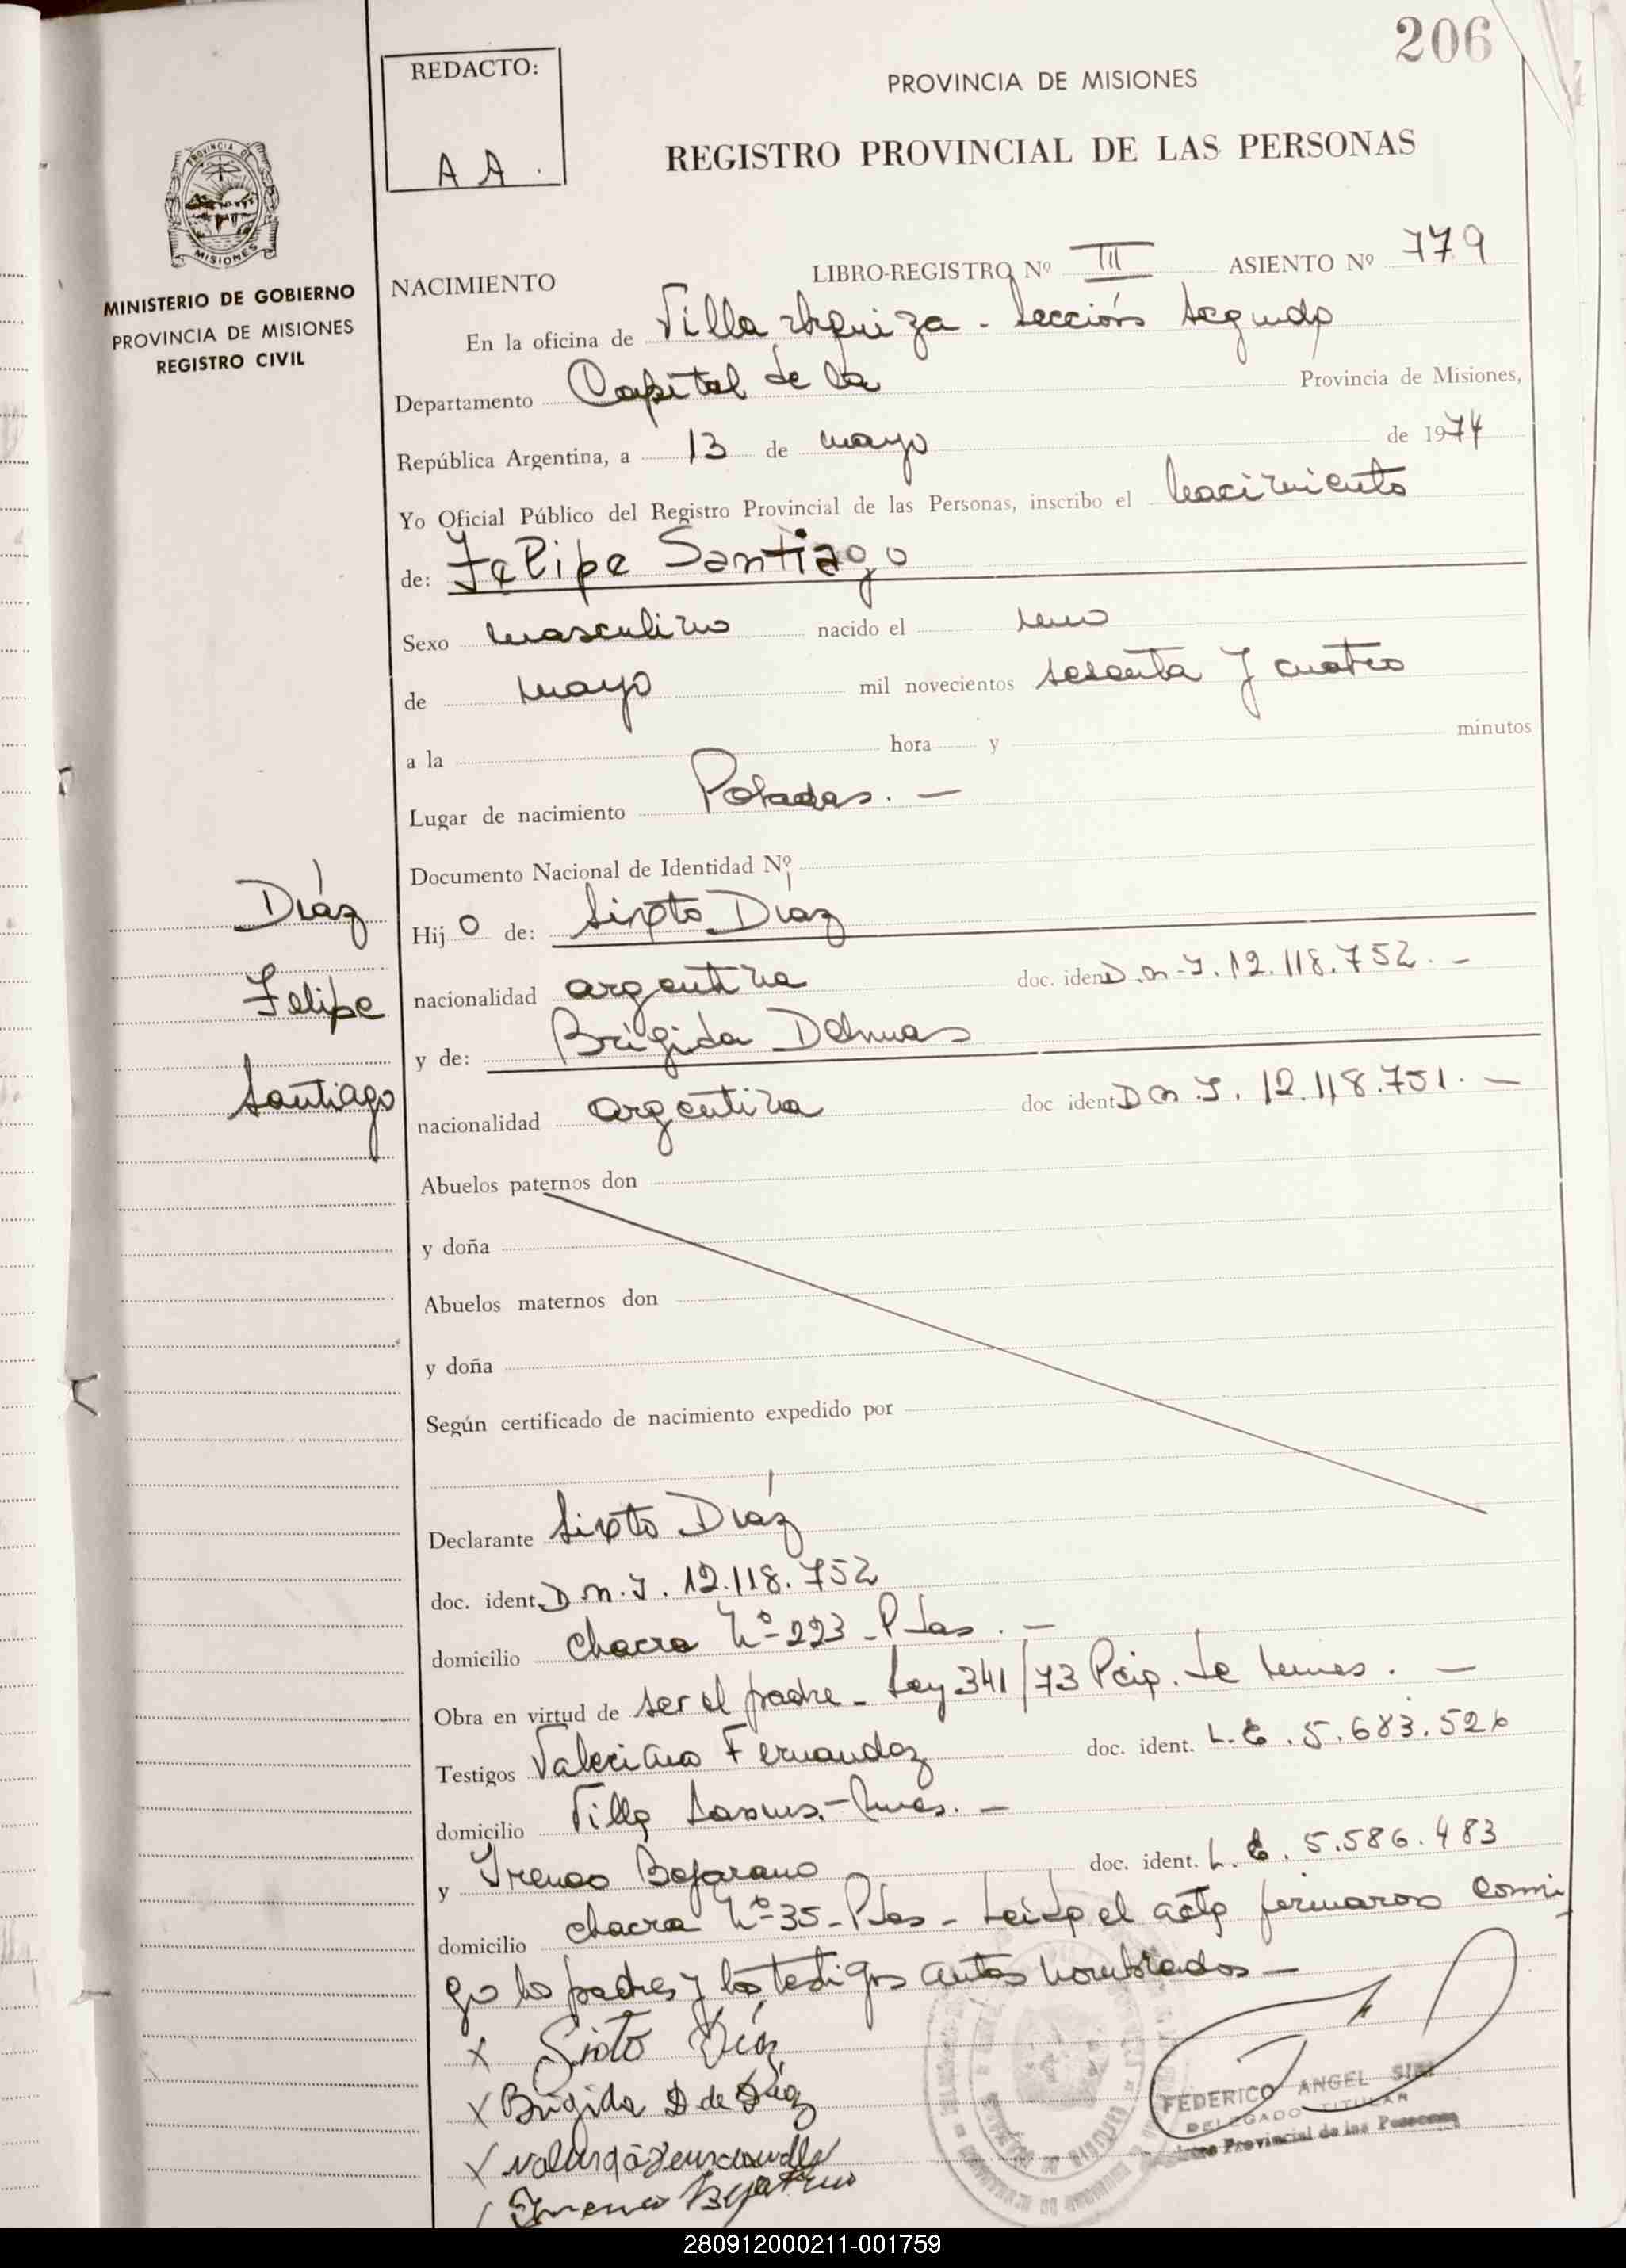 206
REDACTO:
A A.
PROVINCIA DE MISIONES
REGISTRO PROVINCIAL DE LAS PERSONAS
PROVINCIA DE
MISIONES
MINISTERIO DE GOBIERNO
PROVINCIA DE MISIONES
REGISTRO CIVIL
NACIMIENTO LIBRO-REGISTRO Nº III ASIENTO Nº 779
En la oficina de Villa Urquiza - Sección Segunda
Departamento Capital de la Provincia de Misiones,
República Argentina, a 13 de mayo de 1974
Yo Oficial Público del Registro Provincial de las Personas, inscribo el nacimiento
de: Felipe Santiago
Sexo masculino nacido el uno
de mayo mil novecientos sesenta y cuatro
a la hora y minutos
Lugar de nacimiento Posadas. —
Documento Nacional de Identidad Nº
Díaz
Felipe
Santiago
Hij o de: Sixto Díaz
nacionalidad argentina doc. ident D.n.I. 12.118.752. —
y de: Brigida Delmas
nacionalidad argentina doc ident D n.I. 12.118.751. —
Abuelos paternos don
y doña
Abuelos maternos don
y doña
Según certificado de nacimiento expedido por
Declarante Sixto Díaz
doc. ident. D n.I. 12.118.752
domicilio chacra Nº 223 - Psdas. —
Obra en virtud de ser el padre - Ley 341/73 Pcip. de
Testigos Valeriano Fernandez doc. ident. L.E. 5.683.526
domicilio Villa
y Ireneo Bejarano doc. ident. L.E. 5.586.483
domicilio chacra Nº 35 - Psdas - Leida el acta firmaron conmi
go los padres y los testigos antes nombrados —
x Sixto Díaz
x Brigida D de Díaz
x
Ireneo Bejarano
FEDERICO ANGEL
DELEGADO TITULAR
Provincial de las Personas
280912000211-001759